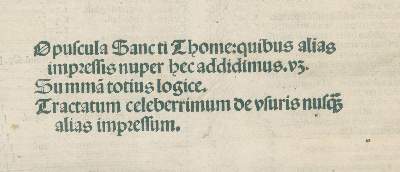 Opuscula Sancti Thome: quibus alias
impressis nuper hec addidimus. vꝫ.
Summā totius logice.
Tractatum celeberrimum de vsuris nusq̄ȝ
alias impressum.